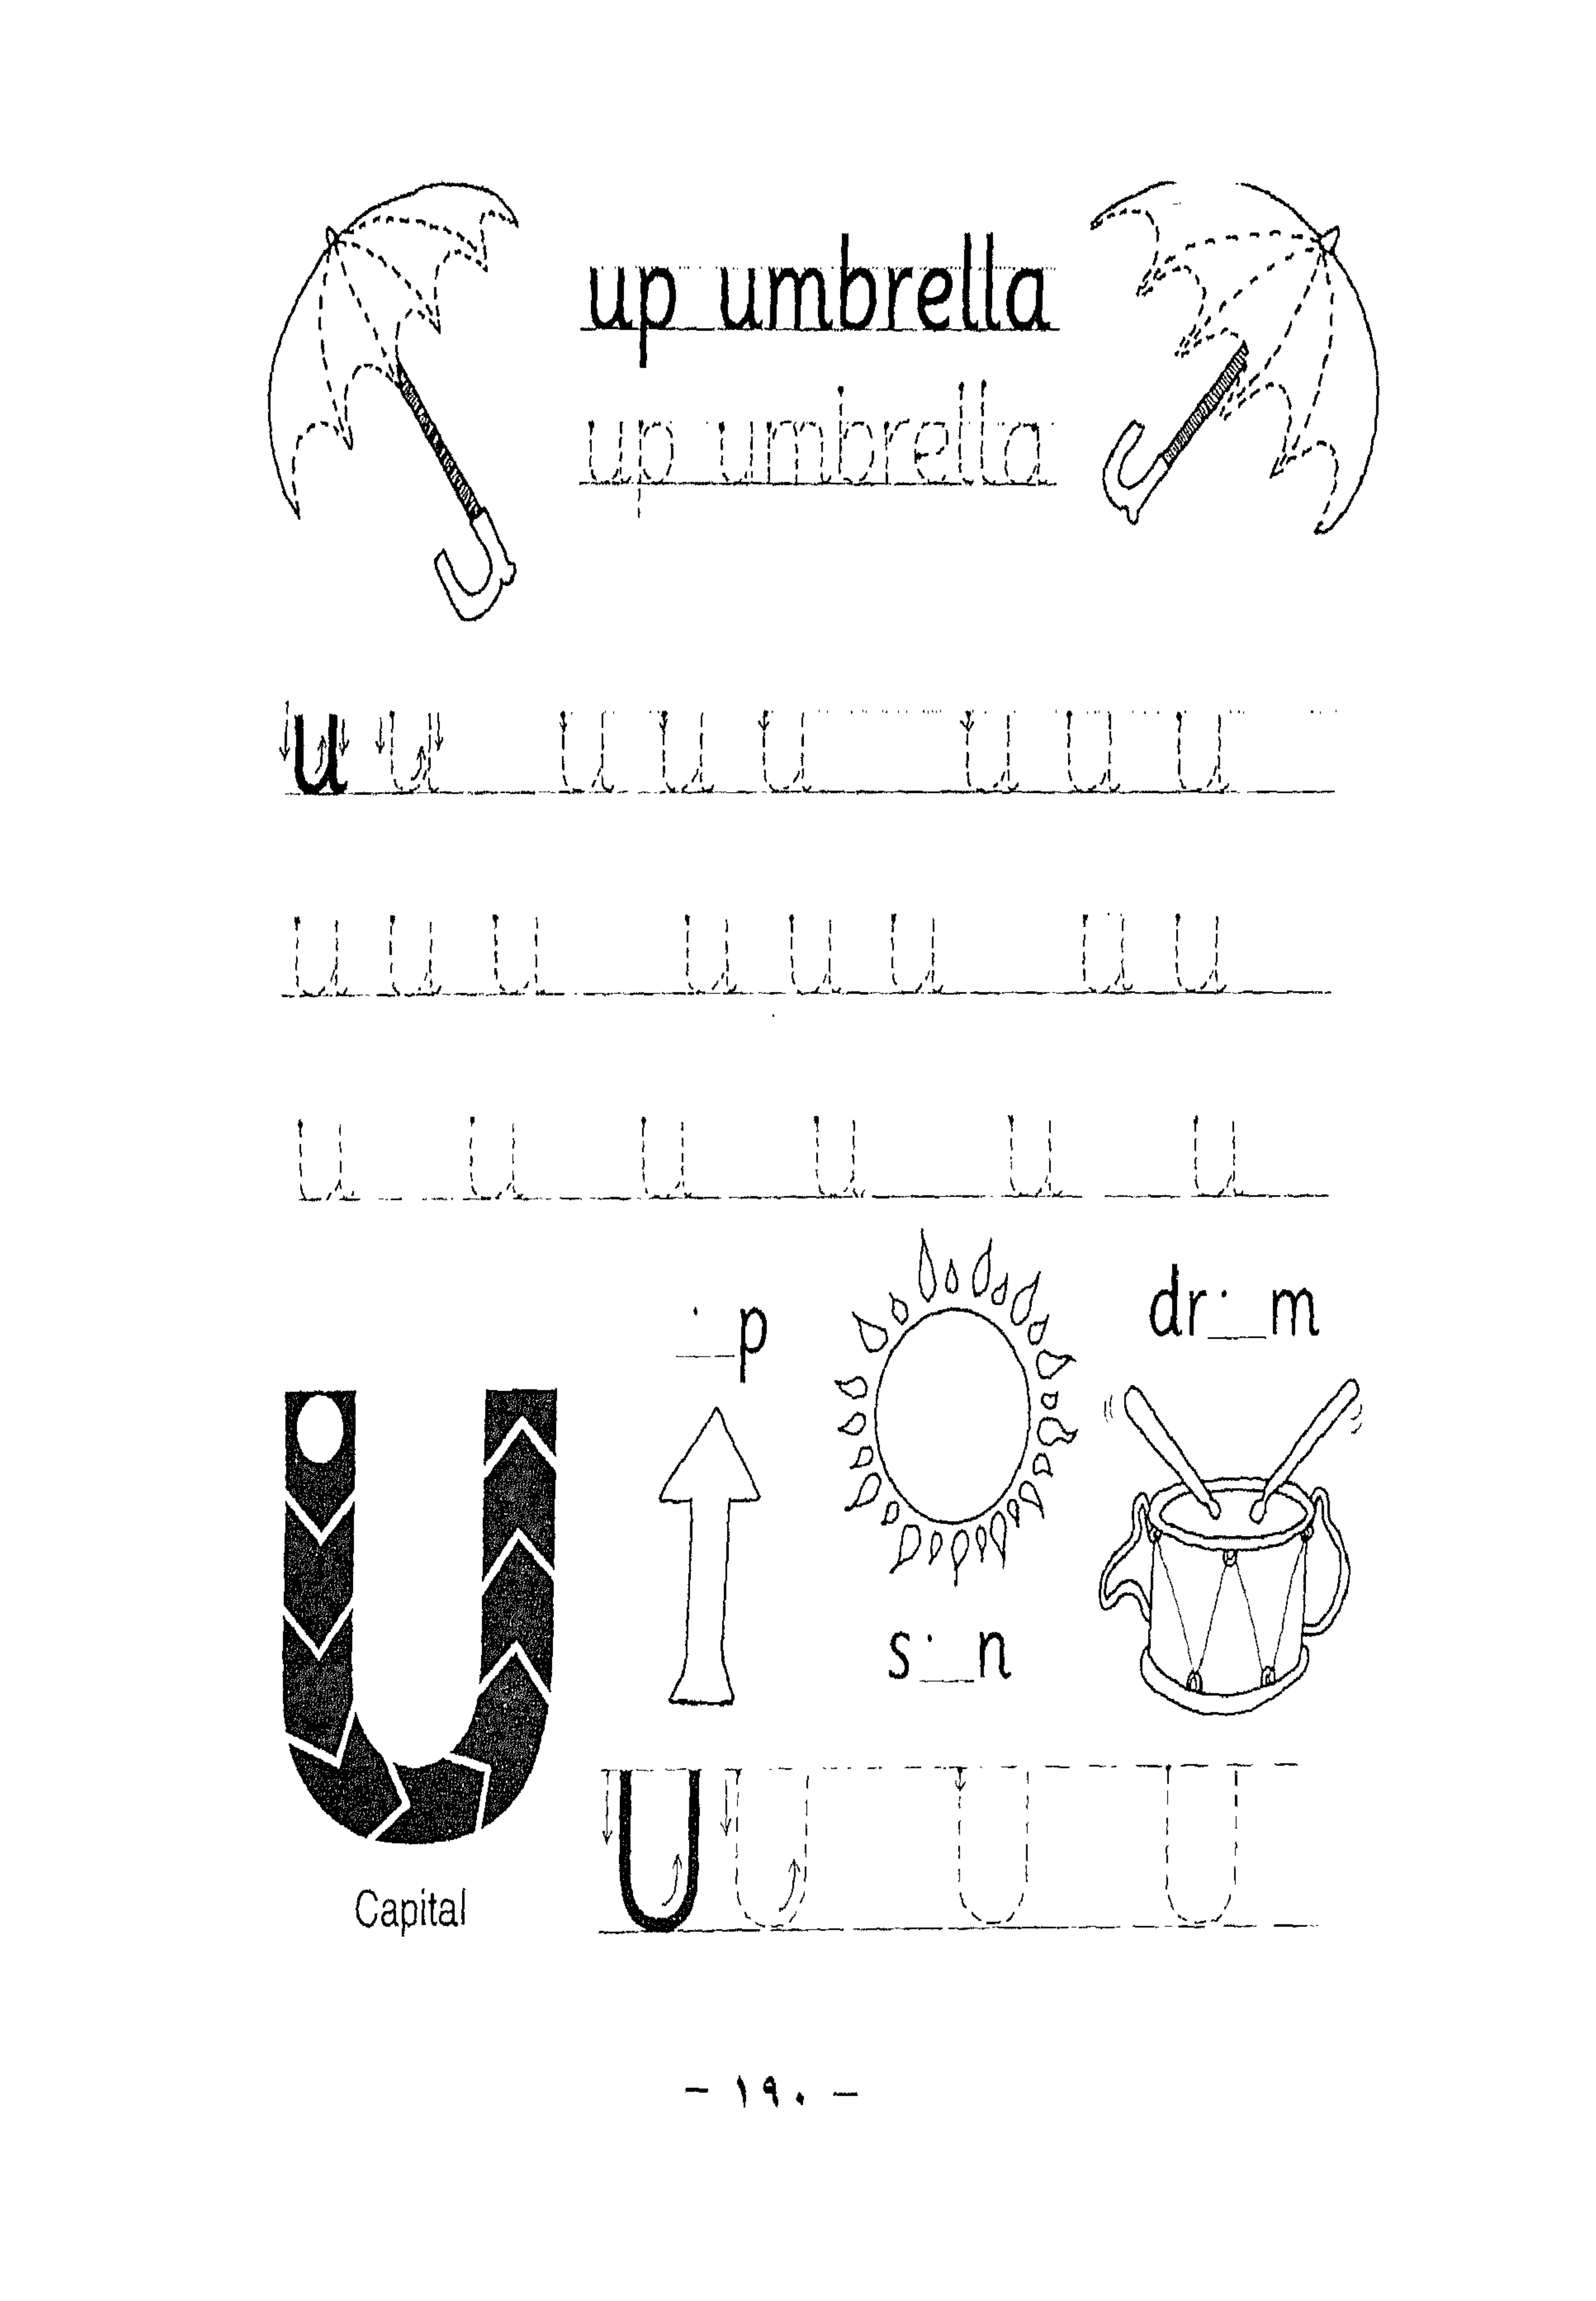 up umbrella
up umbrella
u u u u u u u u
u u u u u u u u
u u u u u u
__p
dr__m
s__n
U
U U U U
Capital
- ١٩٠ -